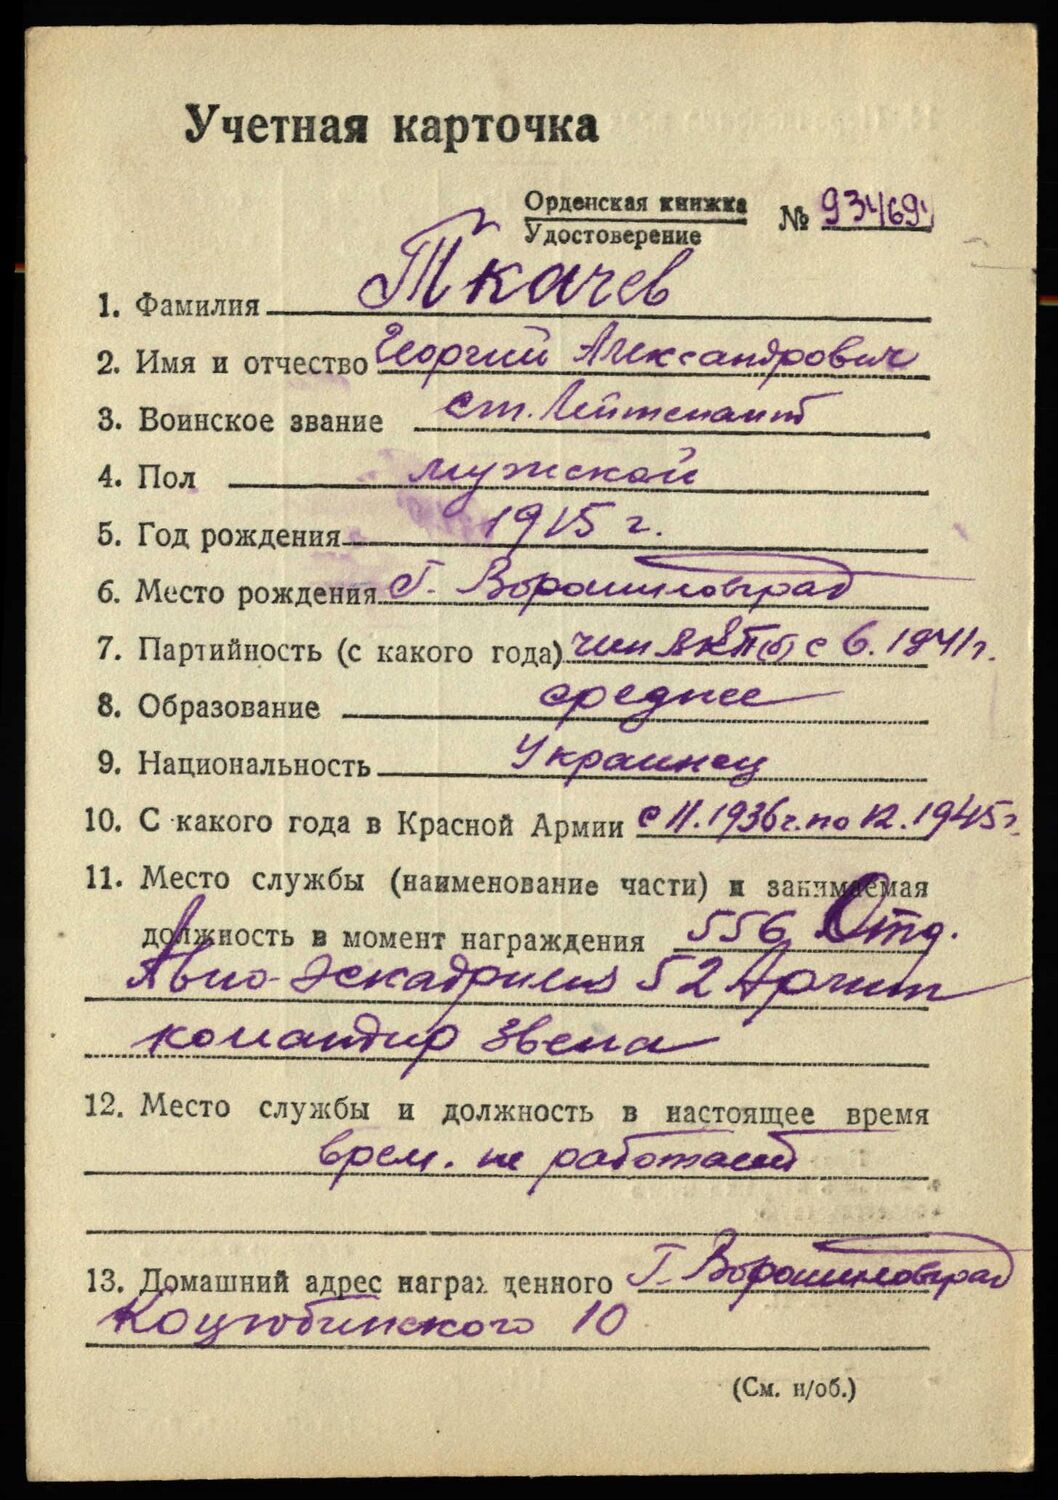 Учетная карточка
Орденская книжка
Удостоверение
№ 934691
1. Фамилия Ткачев
2. Имя и отчество Георгий Александрович
3. Воинское звание ст. Лейтенант
4. Пол мужской
5. Год рождения 1915 г.
6. Место рождения г. Ворошиловград
7. Партийность (с какого года) член ВКП(б) с 6. 1941г.
8. Образование среднее
9. Национальность Украинец
10. С какого года в Красной Армии с 11.1936г. по 12.1945г
11. Место службы (наименование части) и занимаемая
должность в момент награждения 556 Отд.
Авио-Эскадрилия 52 Армии
командир звена
12. Место службы и должность в настоящее время
врем. не работает
13. Домашний адрес награжденного г. Ворошиловград
Коцюбинского 10
(См. н/об.)